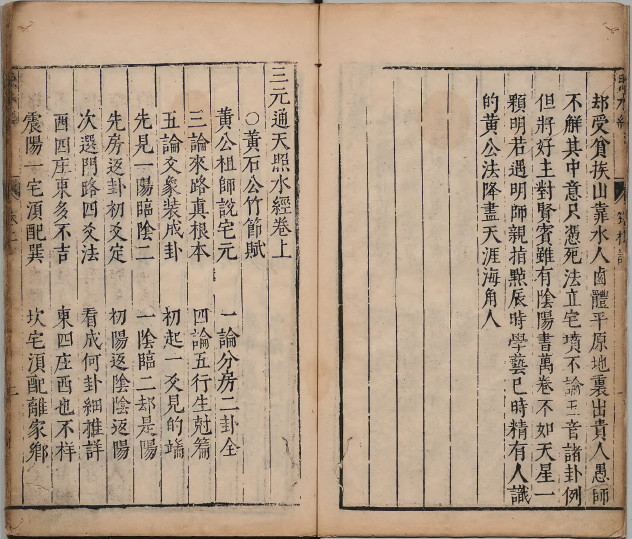 却受貧挨山靠水人鹵體平原地裏出貴人愚師
不觧其中意只憑死法立宅墳不論五音諸卦例
但將好主對賢賓雖有陰陽書萬卷不如天星一
顆明若遇明師親指㸃辰時學藝巳時精有人識
的黄公法降盡天涯海角人
三元通天照水經卷上
○黄石公竹節賦
黄公祖師說宅元 一論分房二卦全
三論來路真根本 四論五行生尅篇
五論爻象裝成卦 初起一爻見的端
先見一陽臨陰二 一陰臨二却是陽
先房返卦初爻定 初陽返陰陰返陽
次選門路四爻法 看成何卦細推詳
酉四庄東多不吉 東四庄酉也不祥
震陽一宅湏配巽 坎宅湏配離家鄉